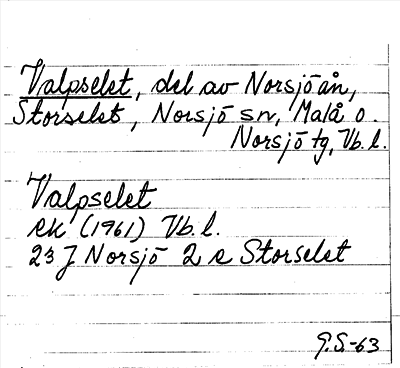 Valpselet, del av Norsjöån,
Storselet, Norsjö sn, Malå o.
Norsjö tg, Vb. l.
Valpselet
ek (1961) Vb. l.
23 J Norsjö 2 e Storselet
G.S.-63